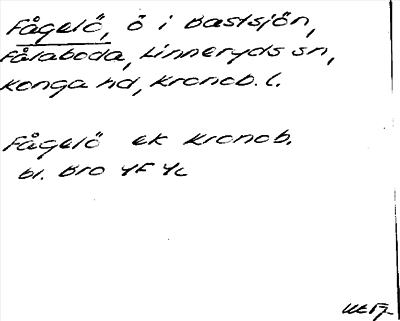 Fågelö, ö i Bastsjön,
Fålaboda, Linneryds sn,
Konga hd, Kronob. l.
Fågelö ek Kronob.
bl. Bro 4F 4c